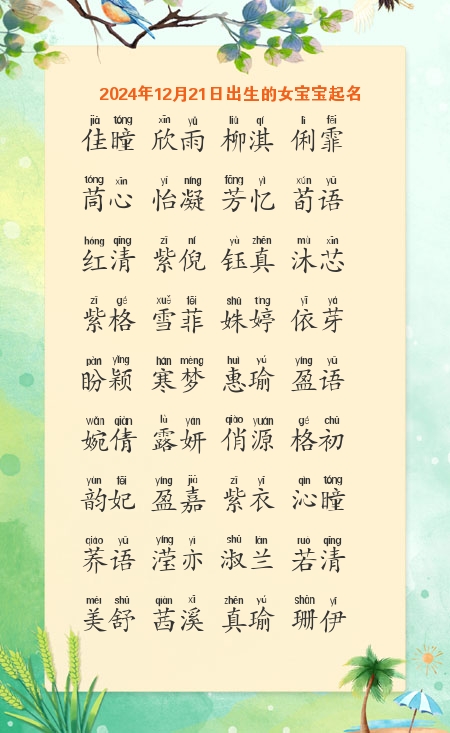 2024年12月21日出生的女宝宝起名
jiā tóng xīn yǔ liǔ qí lì fēi
佳曈 欣雨 柳淇 俐霏
tóng xīn yí níng fāng yì xún yǔ
茼心 怡凝 芳忆 荀语
hóng qīng zǐ ní yù zhēn mù xīn
红清 紫倪 钰真 沐芯
zǐ gé xuě fēi shū tíng yī yá
紫格 雪菲 姝婷 依芽
pàn yǐng hán mèng huì yú yíng yǔ
盼颖 寒梦 惠瑜 盈语
wǎn qiàn lù yán qiào yuán gé chū
婉倩 露妍 俏源 格初
yùn fēi yíng jiā zǐ yī qìn tóng
韵妃 盈嘉 紫衣 沁曈
qiáo yǔ yíng yì shū lán ruò qīng
荞语 滢亦 淑兰 若清
měi shū qiàn xī zhēn yú shān yī
美舒 茜溪 真瑜 珊伊